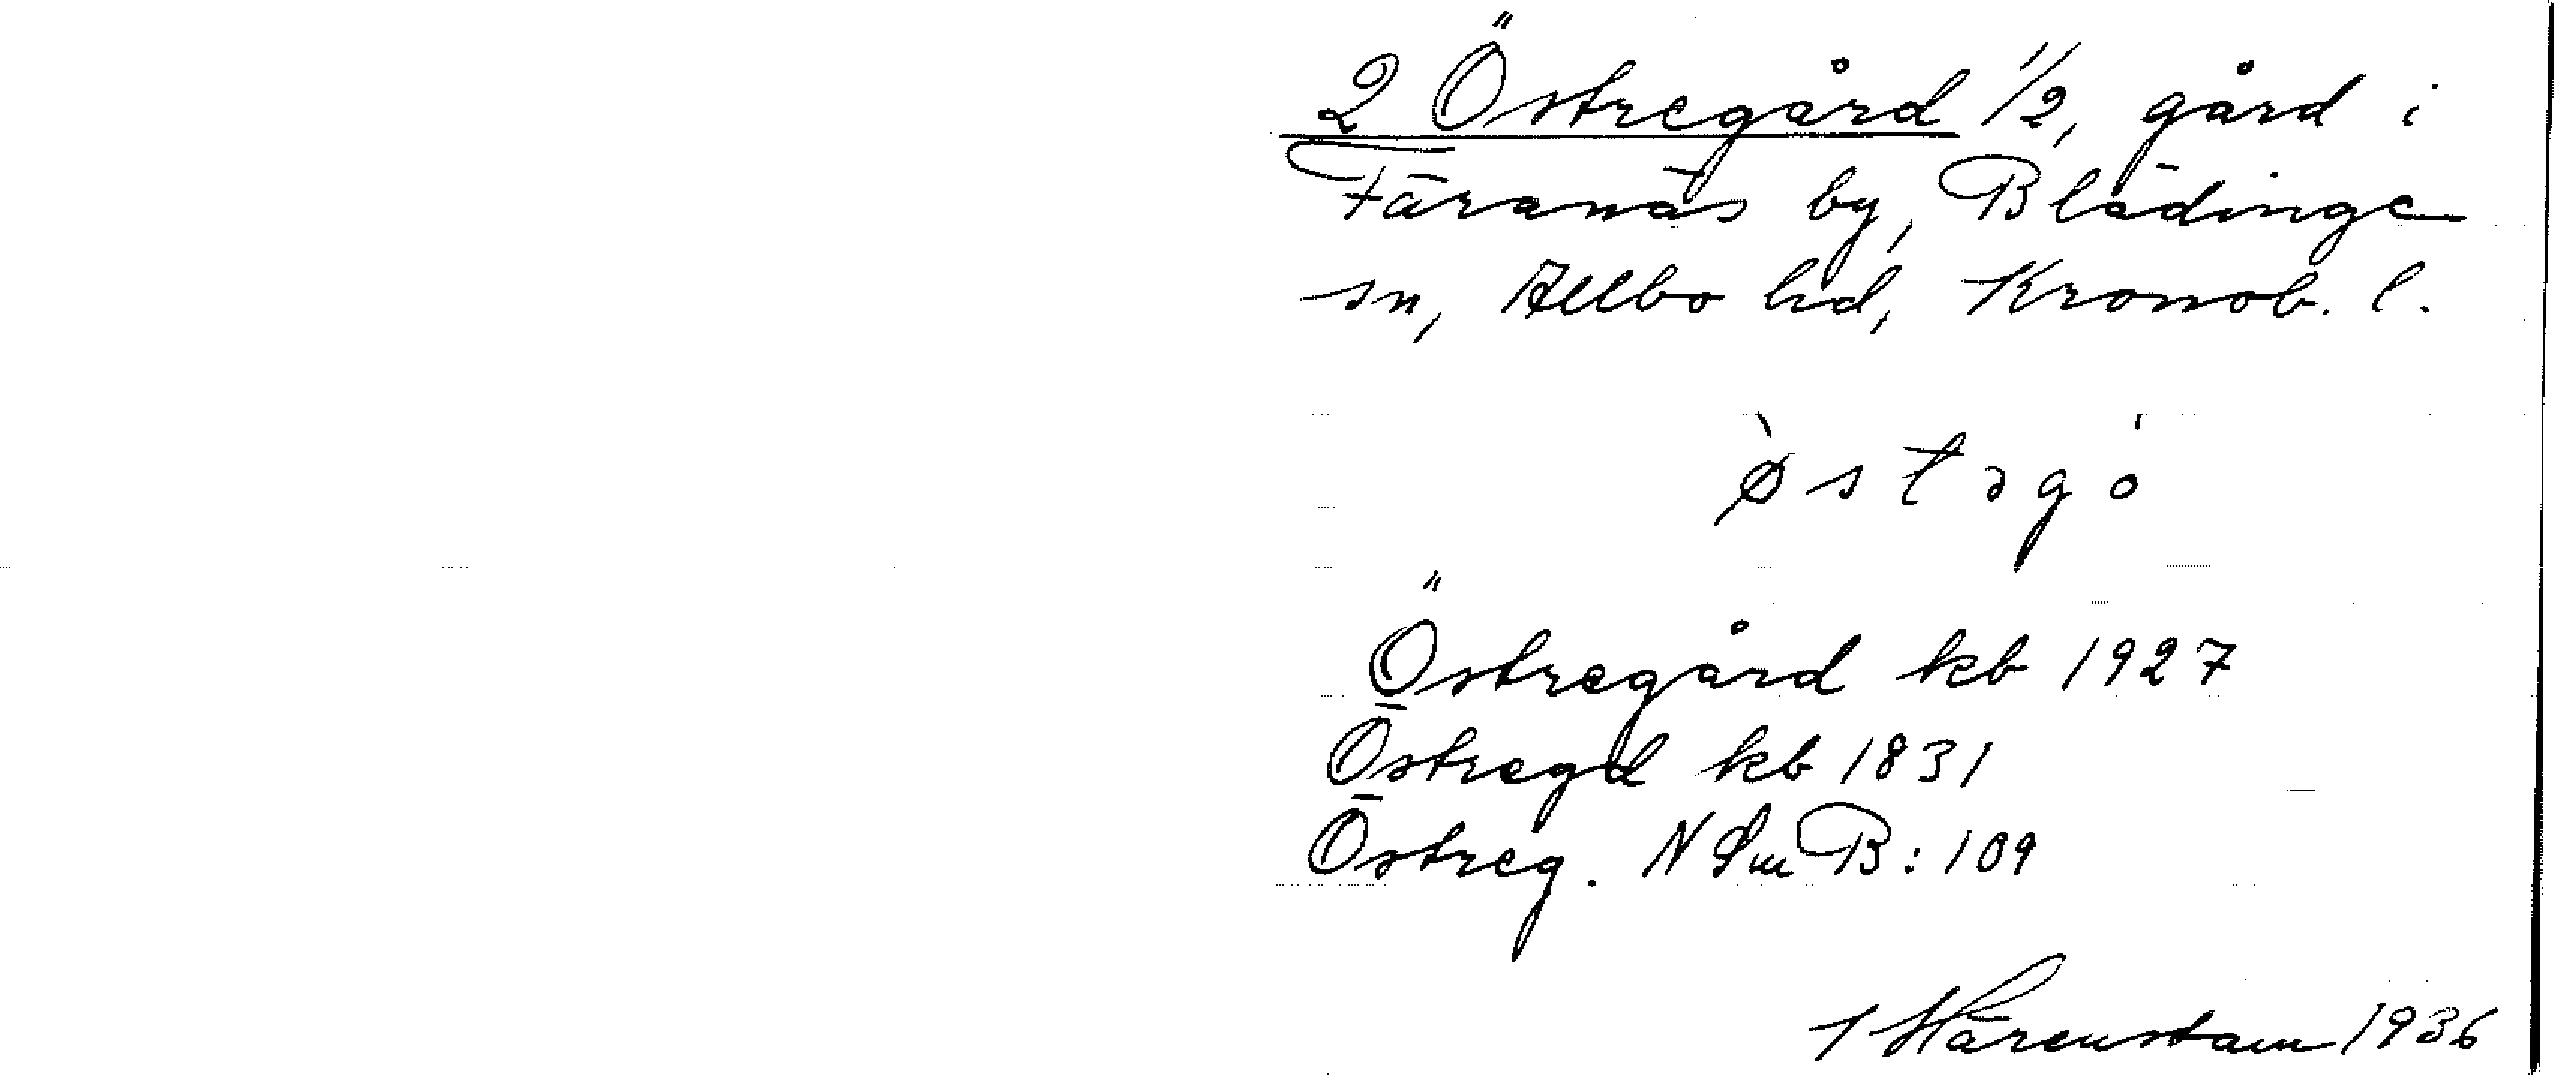 2 Östregård 1/2, gård i
Färanäs by, Blädinge
sn, Allbo hd, Kronob. l.
ø̀stəgó
Östregård kb 1927
Östregd kb 1831
Östreg. NSmB: 109
Härenstam 1936